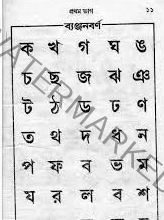 প্রথম ভাগ ১১
ব্যঞ্জনবর্ণ
ক খ গ ঘ ঙ
চ ছ জ ঝ ঞ
ট ঠ ড ঢ ণ
ত থ দ ধ ন
প ফ ব ভ ম
য র ল ব শ
WATERMARKED